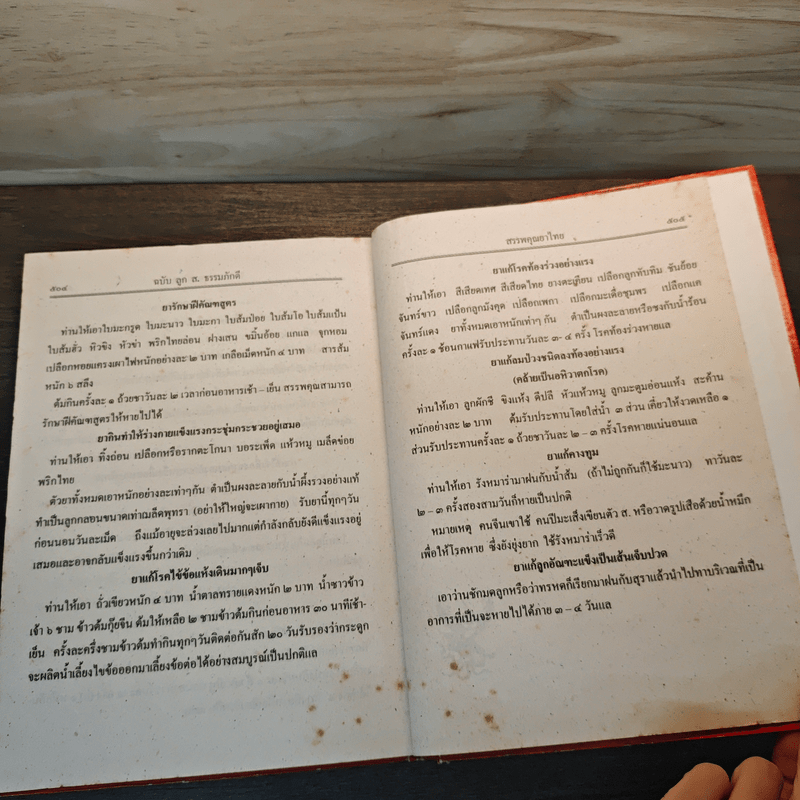 ๕๐๔ ฉบับ ลูก ส. ธรรมภักดี
ยารักษาฝีคัณฑสูตร
ท่านให้เอาใบมะกรูด ใบมะนาว ใบมะกา ใบส้มป่อย ใบส้มโอ ใบส้มแป้น
ใบส้มฮั่ว หัวขิง หัวข่า พริกไทยล่อน ฝางเสน ขมิ้นอ้อย แกแล จุกหอม
เปลือกหอยแครงเผาไฟหนักอย่างละ ๒ บาท เกลือเม็ดหนัก ๔ บาท สารส้ม
หนัก ๖ สลึง
ต้มกินครั้งละ ๑ ถ้วยชาวันละ ๒ เวลาก่อนอาหารเช้า – เย็น สรรพคุณสามารถ
รักษาฝีคัณฑสูตรให้หายไปได้
ยากินทำให้ร่างกายแข็งแรงกระชุ่มกระชวยอยู่เสมอ
ท่านให้เอา ทิ้งถ่อน เปลือกหรือรากตะโกนา บอระเพ็ด แห้วหมู เมล็ดข่อย
พริกไทย
ตัวยาทั้งหมดเอาหนักอย่างละเท่าๆกัน ตำเป็นผงละลายกับน้ำผึ้งรวงอย่างแท้
ทำเป็นลูกกลอนขนาดเท่าเมล็ดพุทรา (อย่าให้ใหญ่จะเผากาย) รับยานี้ทุกๆวัน
ก่อนนอนวันละเม็ด ถึงแม้อายุจะล่วงเลยไปมากแต่กำลังกลับยังดีแข็งแรงอยู่
เสมอและอาจกลับแข็งแรงขึ้นกว่าเดิม
ยาแก้โรคไข้ข้อแห้งเดินมากๆเจ็บ
ท่านให้เอา ถั่วเขียวหนัก ๔ บาท น้ำตาลทรายแดงหนัก ๒ บาท น้ำซาวข้าว
เจ้า ๖ ชาม ข้าวต้มกุ๊ยจีน ต้มให้เหลือ ๒ ชามข้าวต้มกินก่อนอาหาร ๓๐ นาทีเช้า-
เย็น ครั้งละครึ่งชามข้าวต้มทำกินทุกๆวันติดต่อกันสัก ๒๐ วันรับรองว่ากระดูก
จะผลิตน้ำเลี้ยงไขข้อออกมาเลี้ยงข้อต่อได้อย่างสมบูรณ์เป็นปกติแล
สรรพคุณยาไทย ๕๐๕
ยาแก้โรคท้องร่วงอย่างแรง
ท่านให้เอา สีเสียดเทศ สีเสียดไทย ยางตะเคียน เปลือกลูกทับทิม ขันอ้อย
จันทร์ขาว เปลือกลูกมังคุด เปลือกเพกา เปลือกมะเดื่อชุมพร เปลือกแค
จันทร์แดง ยาทั้งหมดเอาหนักเท่าๆ กัน ตำเป็นผงละลายหรือชงกับน้ำร้อน
ครั้งละ ๑ ช้อนกาแฟรับประทานวันละ ๓- ๔ ครั้ง โรคท้องร่วงหายแล
ยาแก้ลมป่วงชนิดลงท้องอย่างแรง
(คล้ายเป็นอหิวาตกโรค)
ท่านให้เอา ลูกผักชี ขิงแห้ง ดีปลี หัวแห้วหมู ลูกมะตูมอ่อนแห้ง สะค้าน
หนักอย่างละ ๒ บาท ต้มรับประทานโดยใส่น้ำ ๓ ส่วน เคี่ยวให้งวดเหลือ ๑
ส่วนรับประทานครั้งละ ๑ ถ้วยชาวันละ ๒ – ๓ ครั้งโรคหายแน่นอนแล
ยาแก้คางทูม
ท่านให้เอา รังหมาร่ามาฝนกับน้ำส้ม (ถ้าไม่ถูกกันก็ใช้มะนาว) ทาวันละ
๒ – ๓ ครั้งสองสามวันก็หายเป็นปกติ
หมายเหตุ คนจีนเขาใช้ คนปีมะเส็งเขียนตัว ส. หรือวาดรูปเสือด้วยน้ำหมึก
เพื่อให้โรคหาย ซึ่งยังยุ่งยาก ใช้รังหมาร่าเร็วดี
ยาแก้ลูกอัณฑะแข็งเป็นเส้นเจ็บปวด
เอาว่านชักมดลูกหรือว่าทรหดก็เรียกมาฝนกับสุราแล้วนำไปทาบริเวณที่เป็น
อาการที่เป็นจะหายไปได้ภาย ๓ – ๔ วันแล